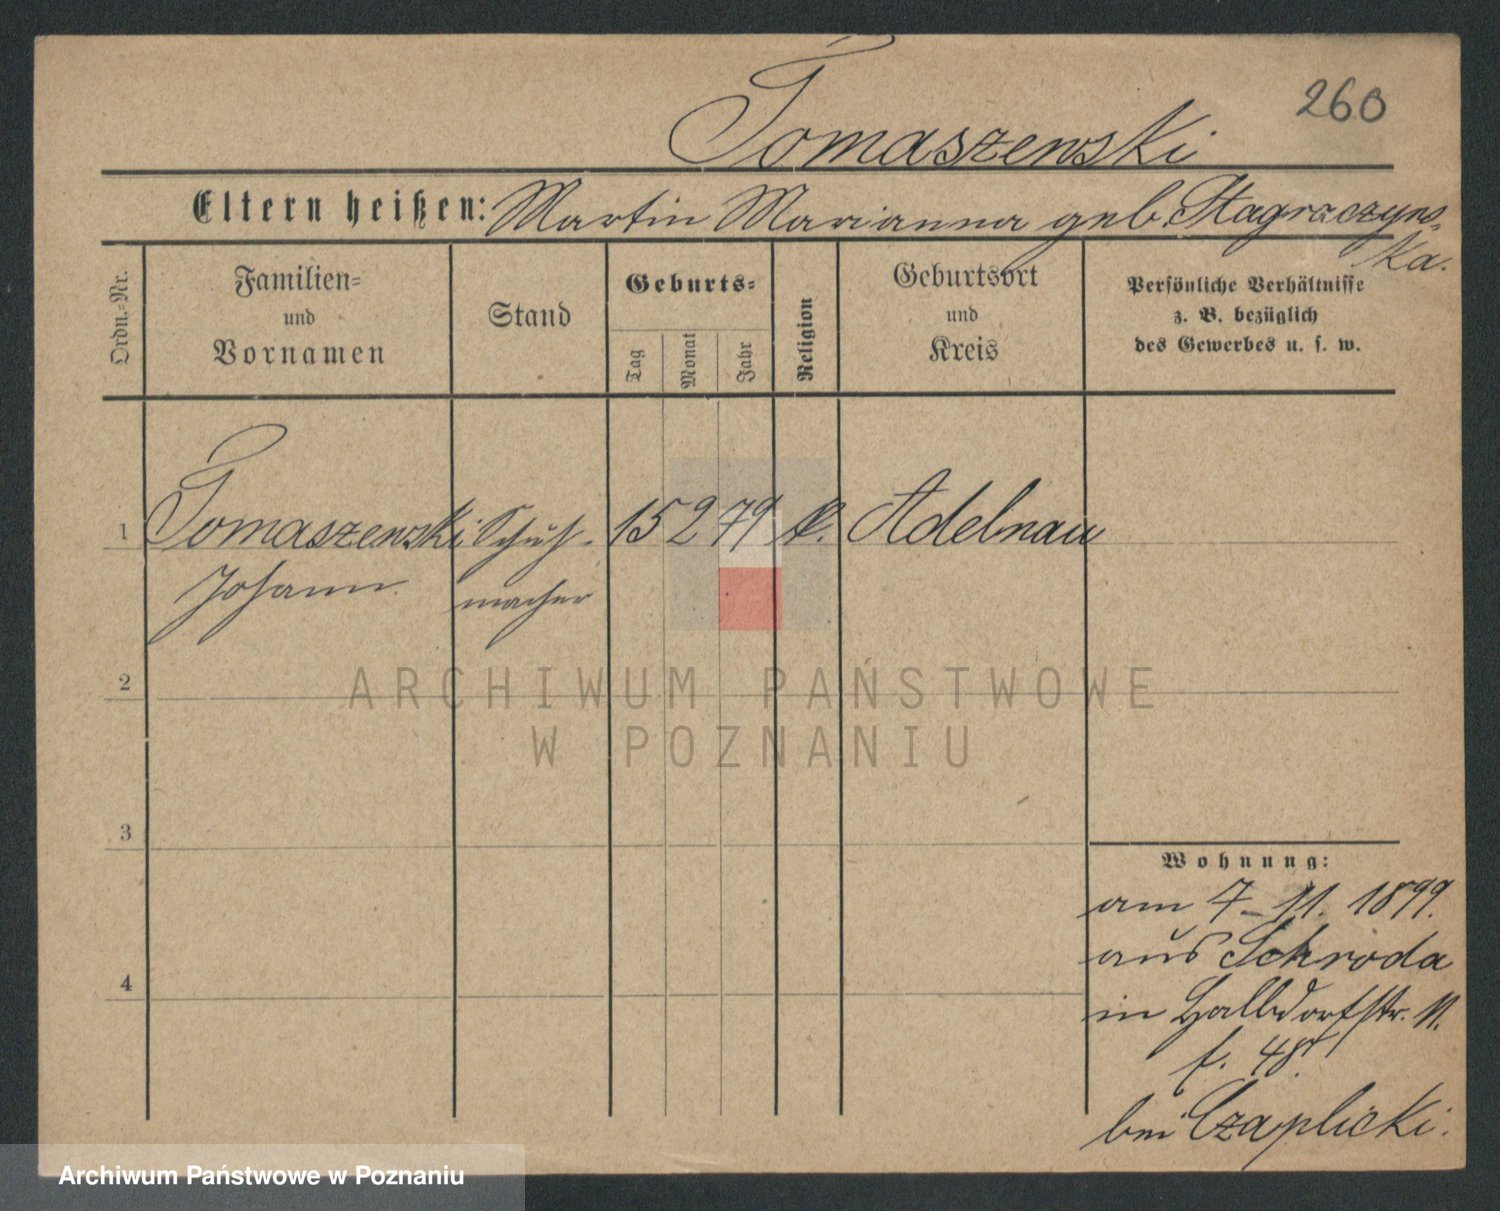 260
Tomaszewski
Eltern heißen: Martin Marianna geb. Stagraczyns-
ka.
Ordn.-Nr.
Familien-
und
Vornamen
Stand
Geburts-
Tag
Monat
Jahr
Religion
Geburtsort
und
Kreis
Persönliche Verhältnisse
z. B. bezüglich
des Gewerbes u. s. w.
1 Tomaszewski Schuh- 15 2 79 k. Adelnau
Johann macher
2
3
4
Wohnung:
am 7-11. 1899.
aus Schroda
in Halbdorfstr. 11.
f. 48
bei Czaplicki.
ARCHIWUM PAŃSTWOWE
W POZNANIU
Archiwum Państwowe w Poznaniu